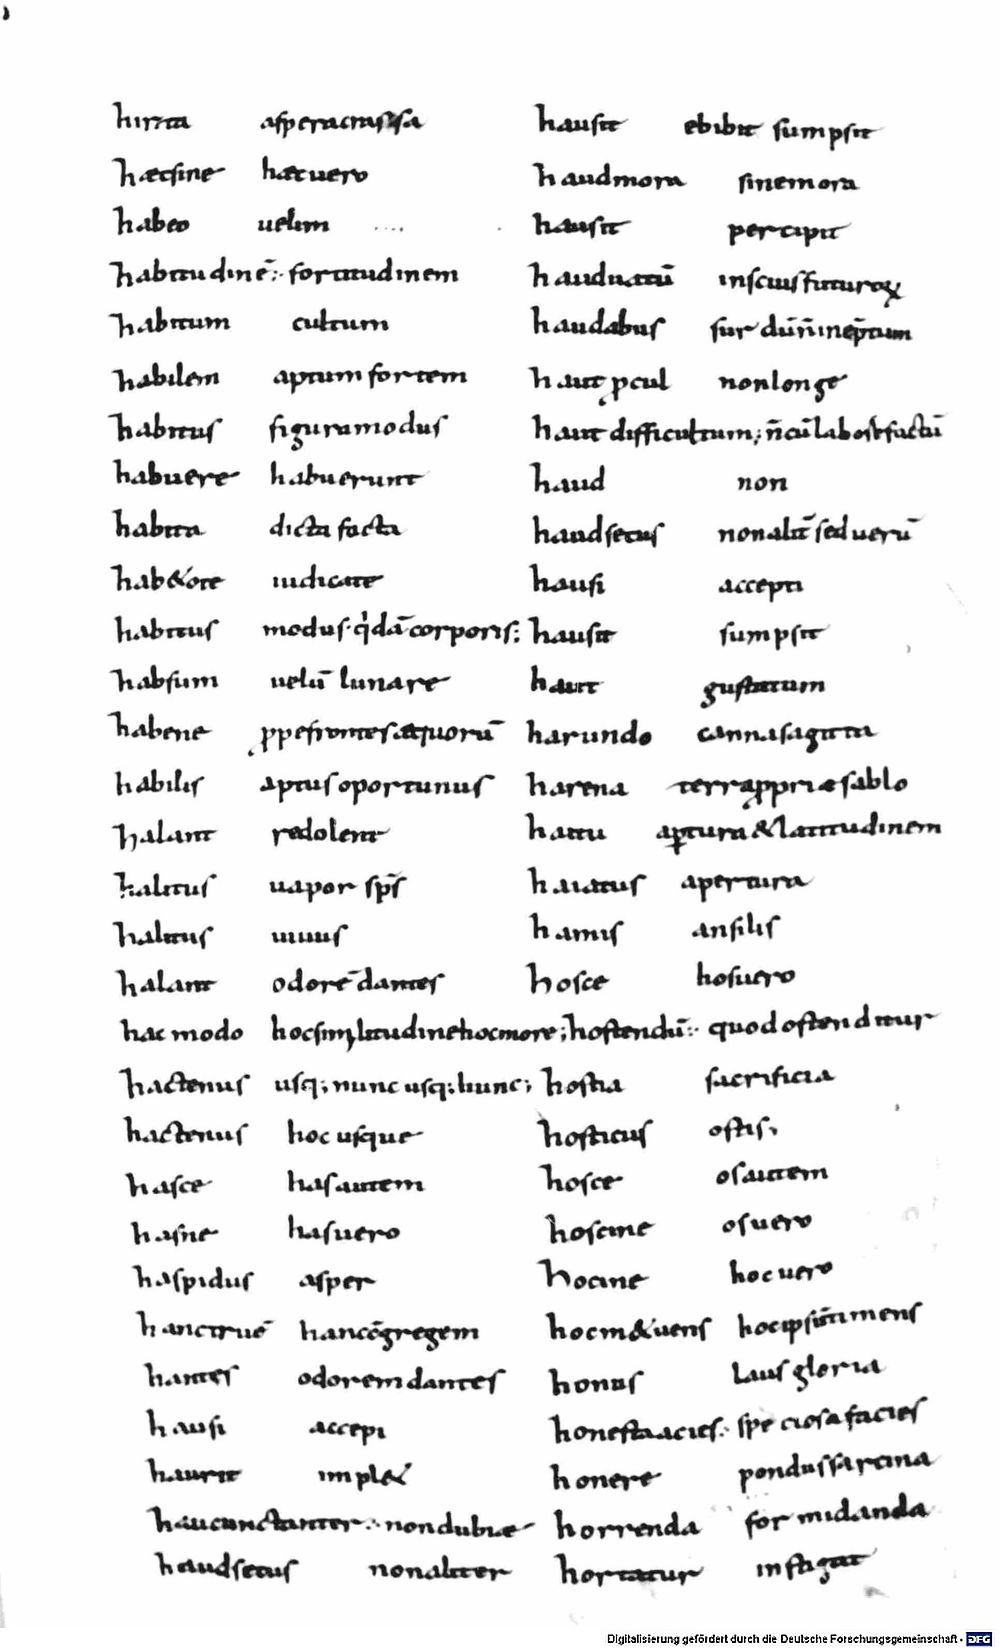 hirta asperacrassa
hęcsine hęcuero
habeo uelim
habitudinē:· fortitudinem
habitum cultum
habilem aptumfortem
habitus figuramodus
habuere habuerunt
habita dicta facta
hab&ote iudicate
habitus modus·qdā corporis:
habsum uelū lunare
habene ꝓpefrontesaequorū
habilis aptusoportunus
halant redolent
halitus uapor sp̄s
halitus
halant odorē dantes
hac modo hocsimilitudinehocmore;
hactenus usq; nunc usq; hunc;
hactenus hoc usque
hasce hasautem
hasne hasuero
haspidus asper
hanctruē hancc̄gregem
hantes odoremdantes
hausi accepi
haurit impl&
haucunctanter:· nondubiae
haudsecus nonaliter
hausit ebibit sumpsit
haudmora sinemora
hausit percipit
hauduatū insciusfuturoꝝ
haudabus
haut ꝓcul nonlonge
haut difficultum; n̄cūlaborefactū
haud non
haudsecus nonalit̄ seduerū
hausi accepti
hausit sumpsit
haut gustatum
harundo cannasagitta
harena terraꝓpriaesablo
hatu aꝑtura&latitudinem
haiatus apertura
hamis ansilis
hosce hosuero
hostendū:· quodostenditur
hostia sacrificia
hosticus ostis;
hosce osautem
hoscine osuero
hocine hocuero
hocm&uens hocipsūtimens
honus laus gloria
honestaacies:· speciosafacies
honere pondussarcina
horrenda formidanda
hortatur instigat
Digitalisierung gefördert durch die Deutsche Forschungsgemeinschaft - DFG